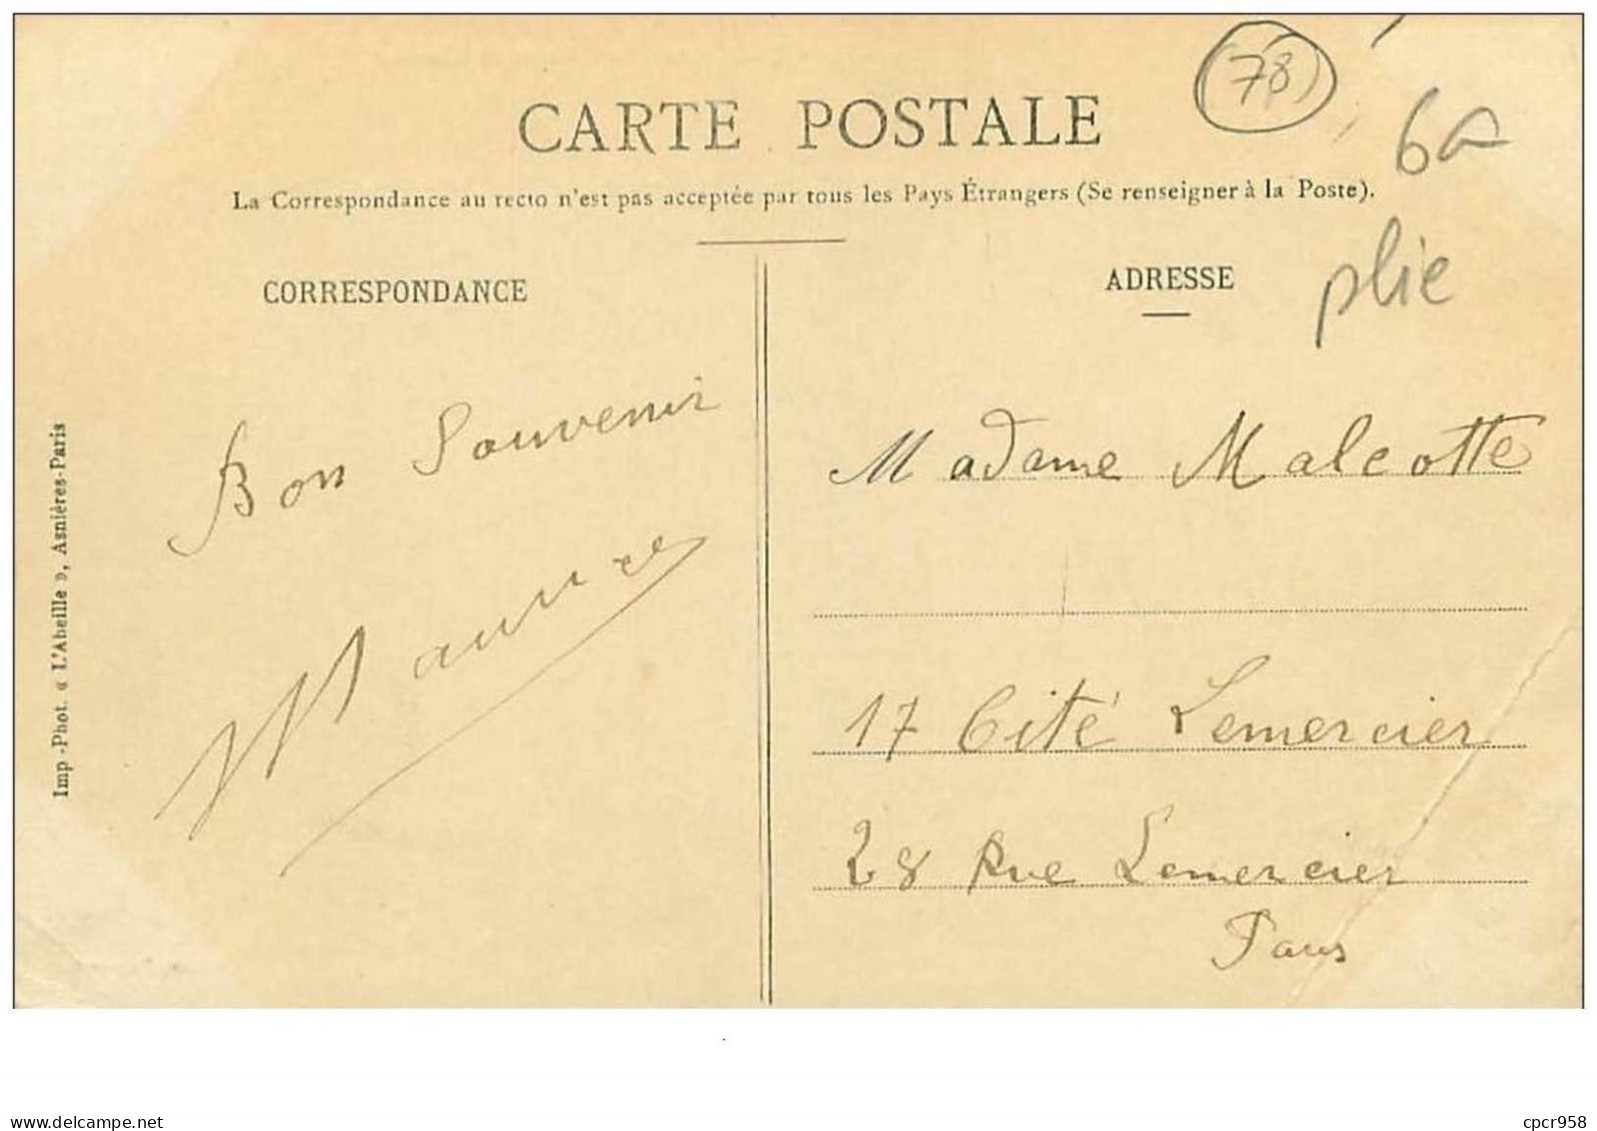 78
CARTE POSTALE
La Correspondance au recto n'est pas acceptée par tous les Pays Étrangers (Se renseigner à la Poste).
plie
CORRESPONDANCE
ADRESSE
Bon Souvenir
Maurice
Madame Malcotte
17 Cité Lemercier
28 Rue Lemercier
Paris
Imp.-Phot. « L'Abeille », Asnières-Paris
delcampe.net
cpcr958